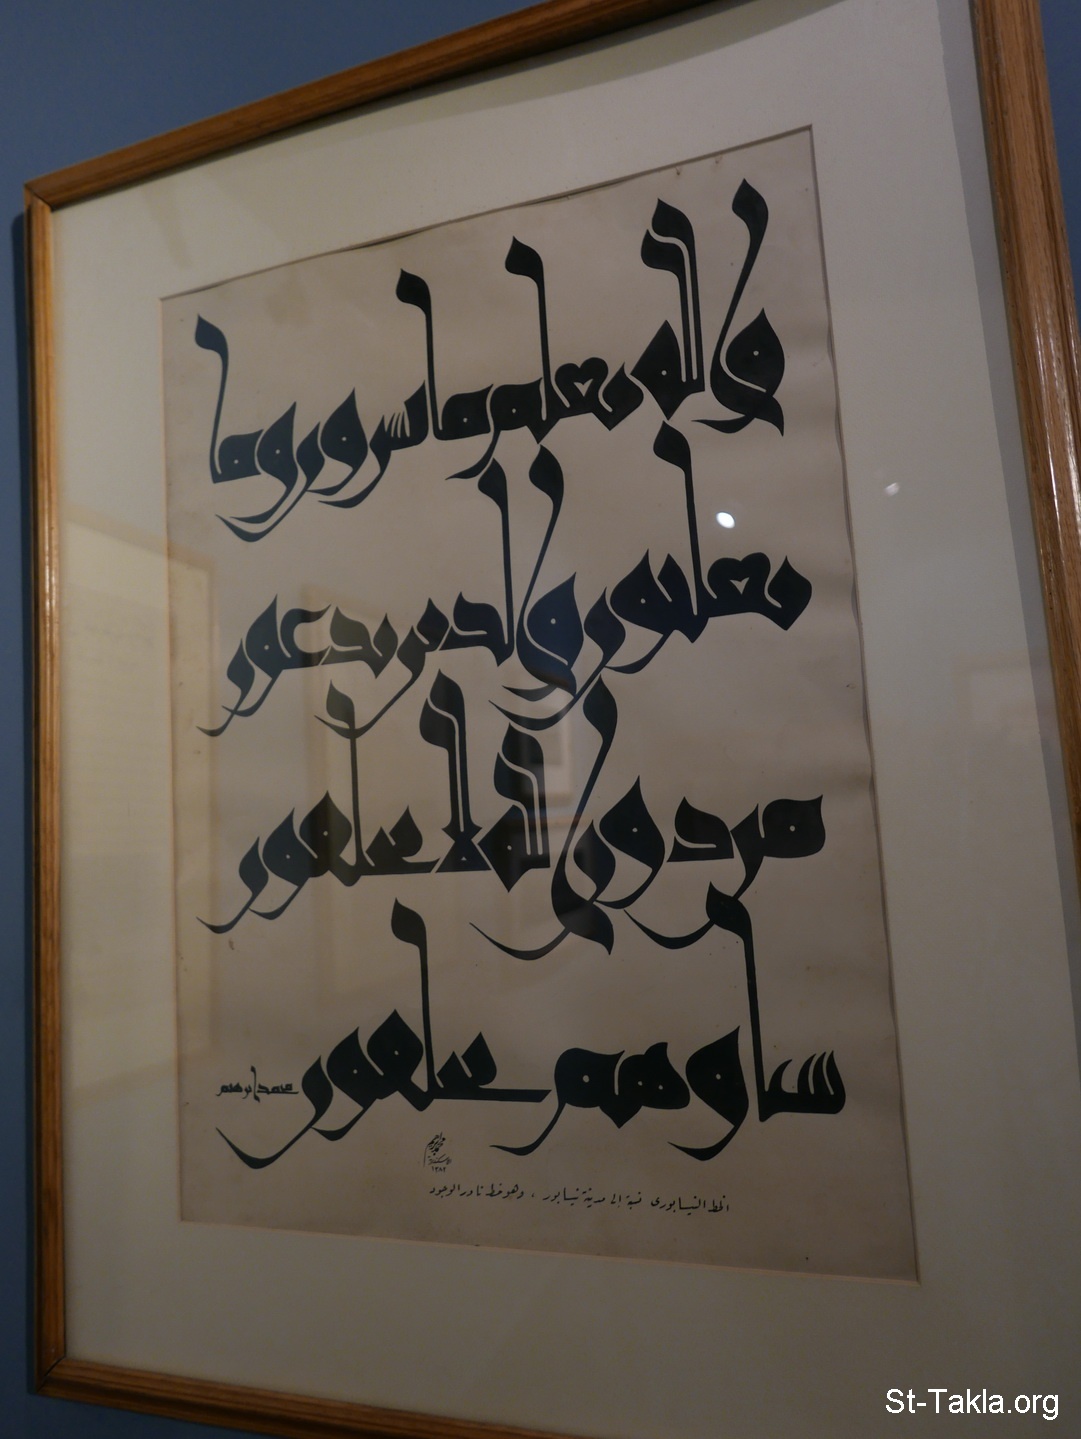 والله يعلم ما تسرون وما
تعلنون والذين يدعون
من دون الله لا يخلقون
شيئا وهم يخلقون
محمد إبرهيم
الخط النيسابورى نسبة إلى مدينة نيسابور ، وهو خط نادر الوجود
St-Takla.org